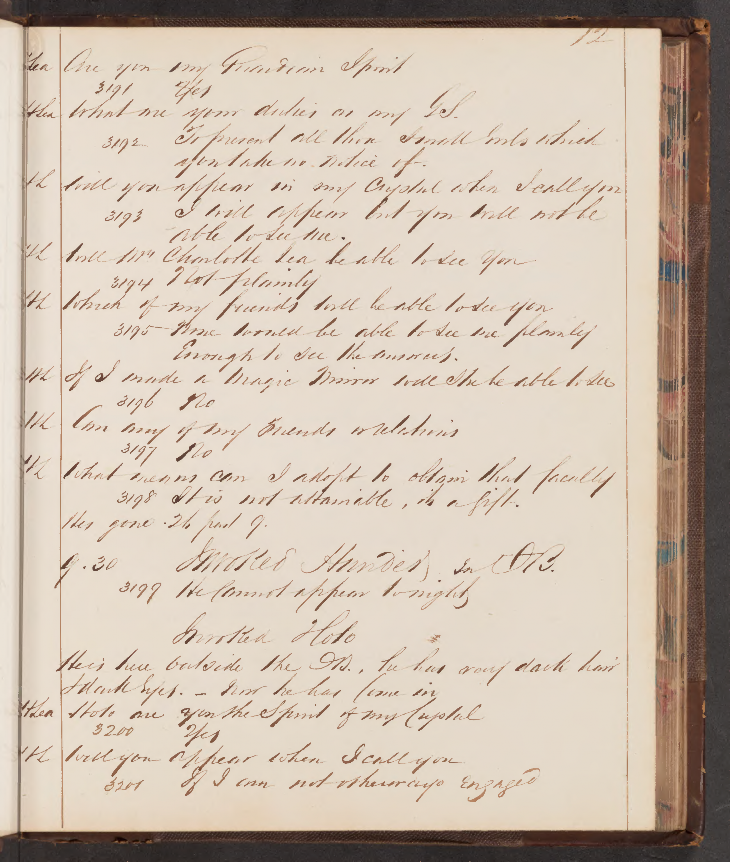 12
Lea Are you my Guardian Spirit
3191 Yes
H Lea What are your duties as my G S.
3192 To prevent all these small evils which
you take no notice of.
HL Will you appear in my Crystal when I call you
3193 I will appear but you will not be
able to see me.
HL Will Mrs Charlotte Lea be able to see You
3194 Not plainly
HL Which of my friends will be able to see you
3195 None would be able to see me plainly
Enough to see the answers.
HL If I made a Magic Mirror will she be able to see
3196 No
HL Can any of my Friends or relations
3197 No
HL What means can I adopt to obtain that faculty
3198 It is not attainable, its a gift.
Hes gone . 24 past 9.
9.30 Invoked
3199 He Cannot appear to night
Invoked Holo
He is here outside the , he has very dark hair
& dark Eyes. – Now he has Come in
H Lea Holo are you the Spirit of my Crystal
3200 Yes
HL Will you appear when I call you
3201 If I am not otherways Engaged